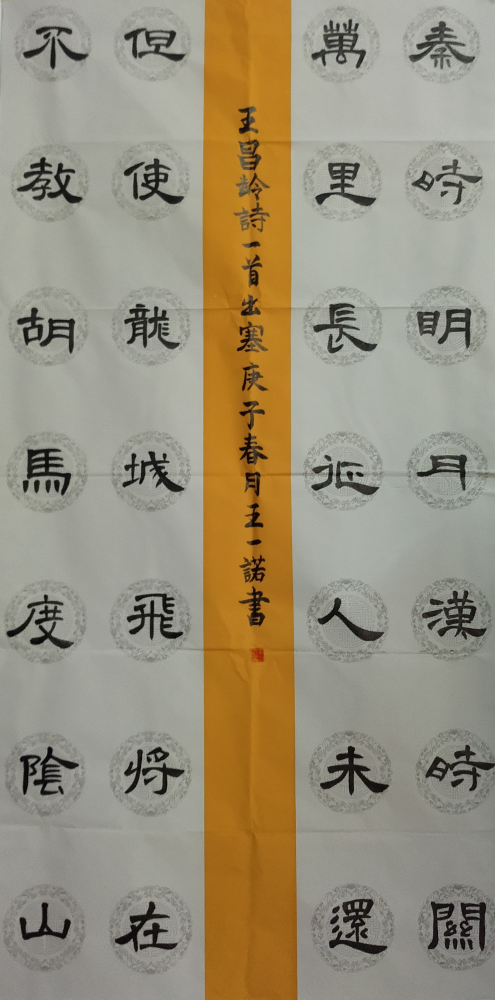 秦時明月漢時關
萬里長征人未還
但使龍城飛將在
不教胡馬度陰山
王昌齡詩一首出塞庚子春月王一諾書